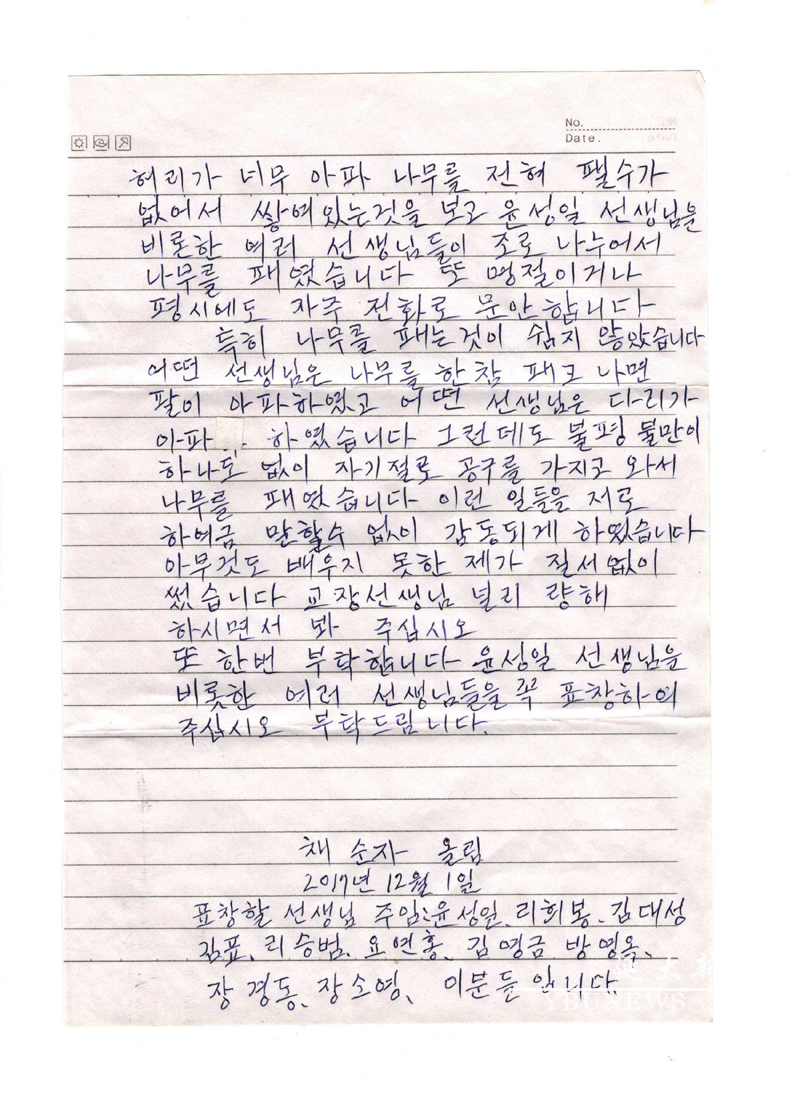 No.
Date.
허리가 너무 아파 나무를 전혀 팰수가
없어서 쌓여있는것을 보고 윤성일 선생님을
비론한 여러 선생님들이 조로 나누어서
나무를 패였습니다 또 명절이거나
평시에도 자주 전화로 문안합니다
특히 나무를 패는것이 쉽지 않았습니다
어떤 선생님은 나무를 한참 패고 나면
팔이 아파하였고 어떤 선생님은 다리가
아파 하였습니다 그런데도 불평 불만이
하나도 없이 자기절로 공구를 가지고 와서
나무를 패였습니다 이런 일들을 저로
하여금 말할수 없이 감동되게 하였습니다
아무것도 배우지 못한 제가 질서없이
썼습니다 교장선생님 널리 량해
하시면서 봐 주십시오
또 한번 부탁합니다 윤성일 선생님을
비롯한 여러 선생님들을 꼭 표창하여
주십시오 부탁드립니다.
채순자 올림
2017년 12월 1일
표창할 선생님 주임:윤성일、리희봉、김대성
김표、리승범、요연홍、김명금 방영옥、
장경동、장소영、 이분들입니다
YBUNEWS